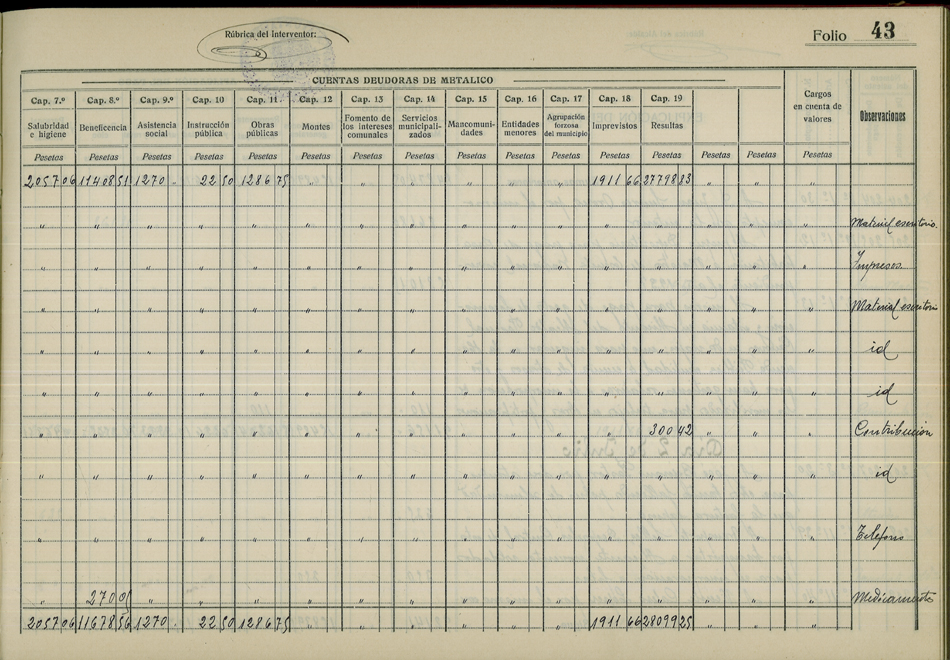 Rúbrica del Interventor:
Folio 43
CUENTAS DEUDORAS DE METALICO
Cap. 7.º Cap. 8.º Cap. 9.º Cap. 10 Cap. 11 Cap. 12 Cap. 13 Cap. 14 Cap. 15 Cap. 16 Cap. 17 Cap. 18 Cap. 19
Salubridad e higiene
Beneficencia
Asistencia social
Instrucción pública
Obras públicas
Montes
Fomento de los intereses comunales
Servicios municipalizados
Mancomunidades
Entidades menores
Agrupación forzosa del municipio
Imprevistos
Resultas
Cargos en cuenta de valores
Observaciones
Pesetas Pesetas Pesetas Pesetas Pesetas Pesetas Pesetas Pesetas Pesetas Pesetas Pesetas Pesetas Pesetas Pesetas Pesetas Pesetas
2057 06 11408 51 1270 - 22 50 1286 75 " " " " " " 1911 66 27798 83 " " "
" " " " " " " " " " " " " " " " Material escritorio
" " " " " " " " " " " " " " " " Impresos
" " " " " " " " " " " " " " " " Material escritorio
" " " " " " " " " " " " " " " " id
" " " " " " " " " " " " " " " " id
" " " " " " " " " " " " 300 42 " " " Contribución
" " " " " " " " " " " " " " " " id
" " " " " " " " " " " " " " " " Teléfono
" 270 05 " " " " " " " " " " " " " " Medicamentos
2057 06 11678 56 1270 - 22 50 1286 75 " " " " " " 1911 66 28099 25 " " "